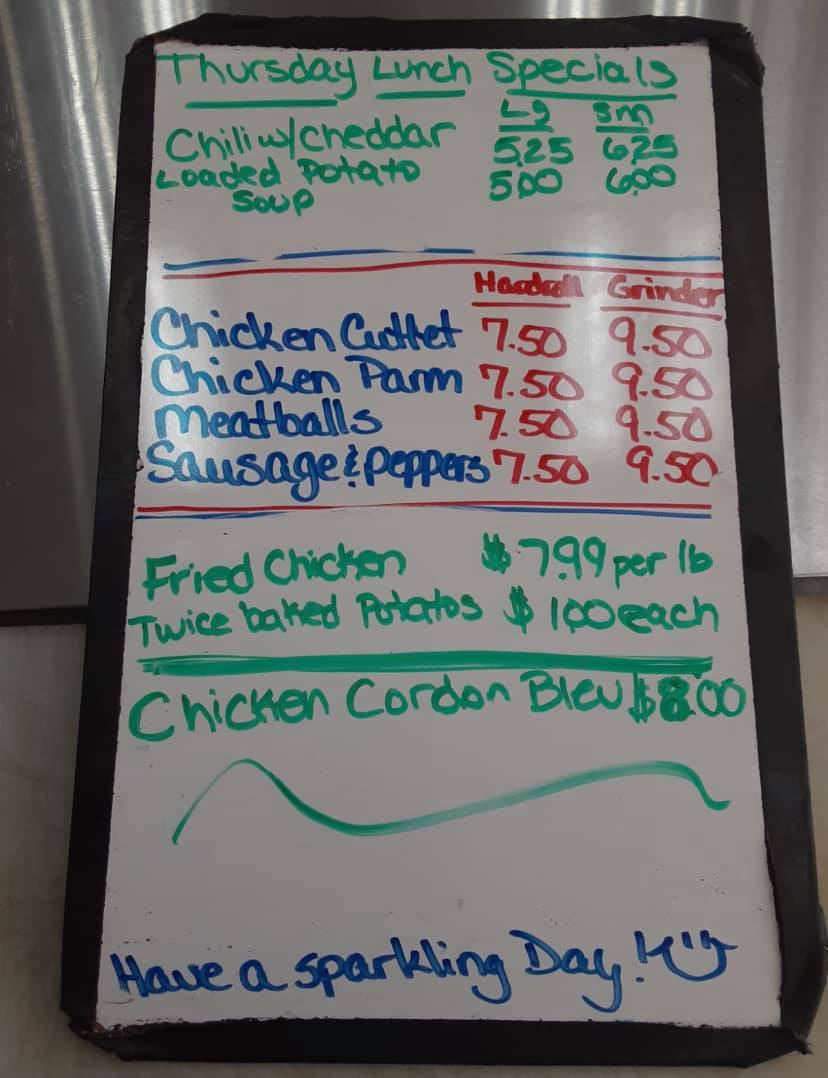 Thursday Lunch Specials
Lg sm
Chili w/cheddar 5.25 6.25
Loaded Potato 5.00 6.00
Soup
Hardroll Grinder
Chicken Cuttlet 7.50 9.50
Chicken Parm 7.50 9.50
Meatballs 7.50 9.50
Sausage & Peppers 7.50 9.50
Fried Chicken $7.99 per lb
Twice baked Potatos $1.00 each
Chicken Cordon Bleu $8.00
Have a sparkling Day!